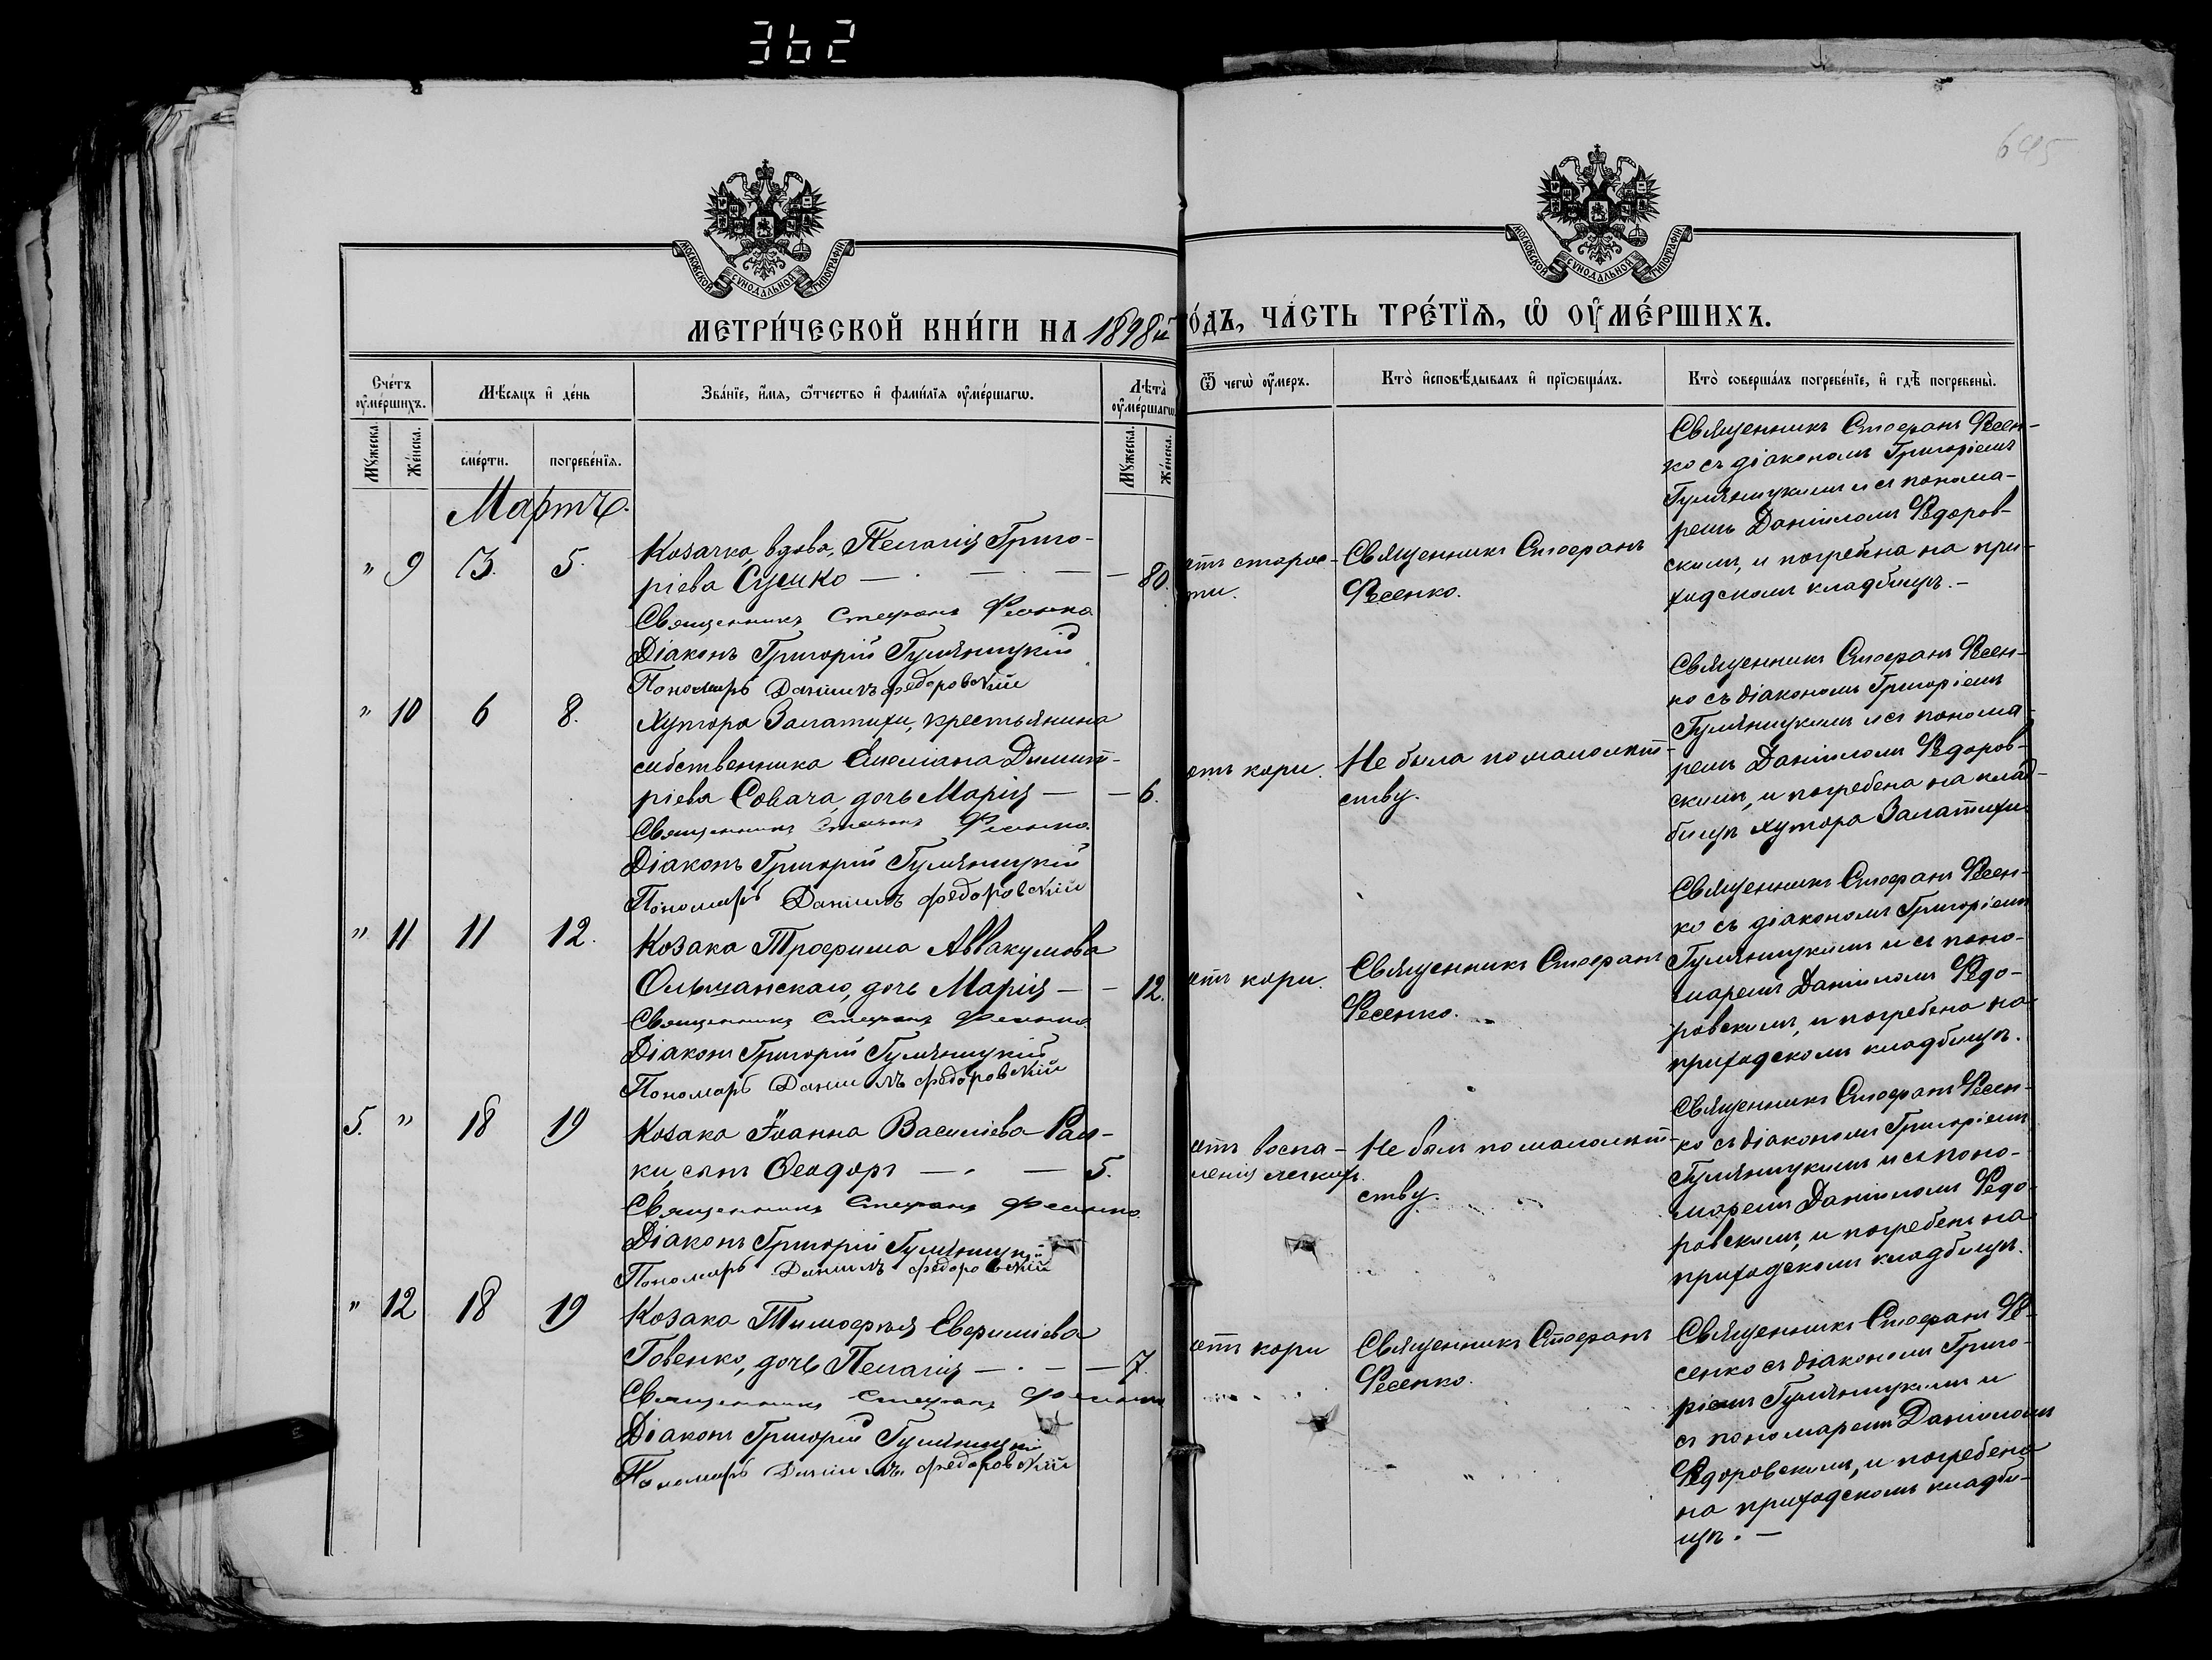 362
645
МОСКОВСКОЙ СУНОДАЛЬНОЙ ТИПОГРАФІИ
МОСКОВСКОЙ СУНОДАЛЬНОЙ ТИПОГРАФІИ
МЕТРИ́ЧЕСКОЙ КНИ́ГИ НА 1898й
О́ДЪ, ЧА́СТЬ ТРЕ́ТЇѦ, Ѡ ОУМЕ́РШИХЪ.
Сче́тъ оуме́ршихъ.
Мѣ́сяцъ и де́нь
Зва́нїе, и́мя, ѻ́тчество и фами́лїя оуме́ршагѡ.
Лѣта̀ оуме́ршагѡ
Ѿ чегѡ̀ оу́меръ.
Кто̀ исповѣ́дывалъ и прїѡбща́лъ.
Кто̀ соверша́лъ погребе́нїе, и гдѣ̀ погребены̀.
Мꙋжеска.
Же́нска.
сме́рти.
погребе́нїя.
Мꙋжеска.
Же́нска.
Мартъ.
" 9 3. 5.
Козачка, вдова, Пелагія Григо-
ріева Сушко — . — . — — 80.
Священникъ Стефанъ Фесенко
Діаконъ Григорій Гумяницкій
Пономарь Даніилъ Федоровскій
отъ старос-
ти.
Священникъ Стефанъ
Фесенко.
Священникъ Стефанъ Фесен-
ко съ діакономъ Григоріемъ
Гумяницкимъ и съ понома-
ремъ Даніиломъ Федоров-
скимъ, и погребена на при-
ходскомъ кладбищѣ.—
" 10 6 8.
Хутора Залатихи, крестьянина
собственника Емеліана Димит-
ріева Совача, дочь Марія — — 6.
Священникъ Стефанъ Фесенко
Діаконъ Григорій Гумяницкій
Пономарь Даніилъ Федоровскій
отъ кори.
Не была по малолѣт-
ству.
Священникъ Стефанъ Фесен-
ко съ діакономъ Григоріемъ
Гумяницкимъ и съ понома-
ремъ Даніиломъ Федоров-
скимъ, и погребена на клад-
бищѣ хутора Залатихи
" 11 11 12.
Козака Трофима Аввакумова
Ольшанскаго, дочь Марія — — 12.
Священникъ Стефанъ Фесенко
Діаконъ Григорій Гумяницкій
Пономарь Даніилъ Федоровскій
отъ кори.
Священникъ Стефанъ
Фесенко.
Священникъ Стефанъ Фесен-
ко съ діакономъ Григоріемъ
Гумяницкимъ и съ поно-
маремъ Даніиломъ Федо-
ровскимъ, и погребена на
приходскомъ кладбищѣ.
5. " 18 19
Козака Іоанна Василіева Рай-
ки, сынъ Ѳеодоръ — . — 5.
Священникъ Стефанъ Фесенко
Діаконъ Григорій Гумяницкій
Пономарь Даніилъ Федоровскій
отъ воспа-
ленія легкихъ.
Не былъ по малолѣт-
ству.
Священникъ Стефанъ Фесен-
ко съ діакономъ Григоріемъ
Гумяницкимъ и съ поно-
маремъ Даніиломъ Федо-
ровскимъ, и погребенъ на
приходскомъ кладбищѣ.
" 12 18 19
Козака Тимоѳея Евфиміева
Говенко, дочь Пелагія — . — — 7.
Священникъ Стефанъ Фесенко
Діаконъ Григорій Гумяницкій
Пономарь Даніилъ Федоровскій
отъ кори
Священникъ Стефанъ
Фесенко.
Священникъ Стефанъ Фе-
сенко съ діакономъ Григо-
ріемъ Гумяницкимъ и
съ пономаремъ Даніиломъ
Федоровскимъ, и погребена
на приходскомъ кладби-
щѣ.—